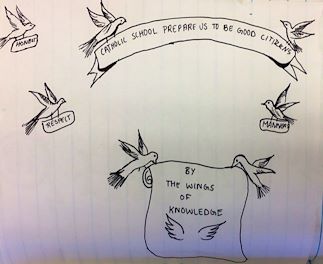 HONOUR
CATHOLIC SCHOOL PREPARE US TO BE GOOD CITIZENS
RESPECT
MANNERS
BY
THE WINGS
OF
KNOWLEDGE